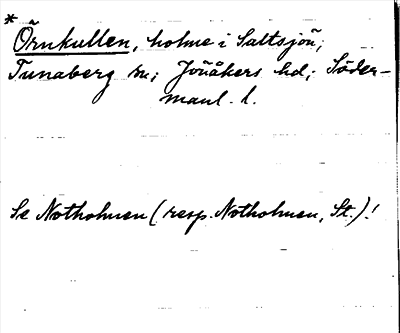 * Örnkullen, holme i Saltsjön;
Tunaberg sn; Jönåkers hd; Söder-
manl. l.
Se Notholmen (resp. Notholmen, St.)!